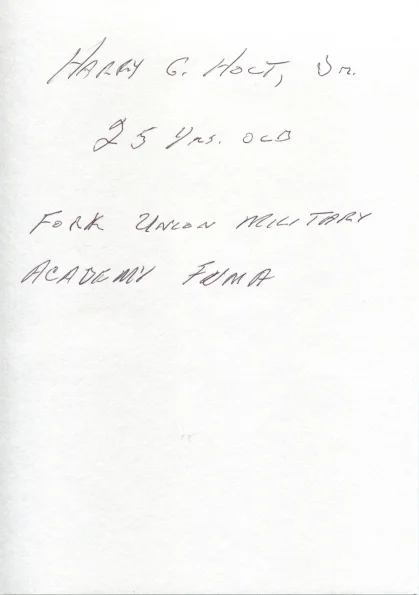 Harry G. Holt, Jr.
25 Yrs. OLD
FORK UNION MILITARY
ACADEMY FUMA